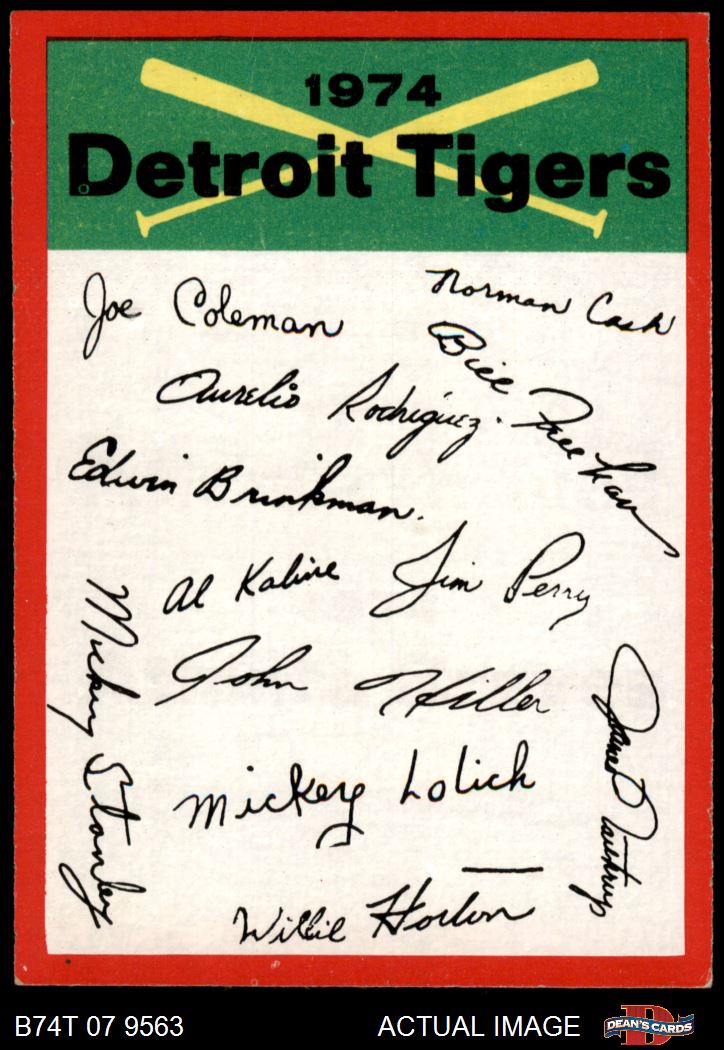 1974
Detroit Tigers
Joe Coleman
Norman Cash
Bill Freehan
Aurelio Rodriguez.
Edwin Brinkman.
Al Kaline
Jim Perry
Mickey Stanley
John Hiller
James
Mickey Lolich
Willie Horton
B74T 07 9563
ACTUAL IMAGE
D
DEAN'S CARDS